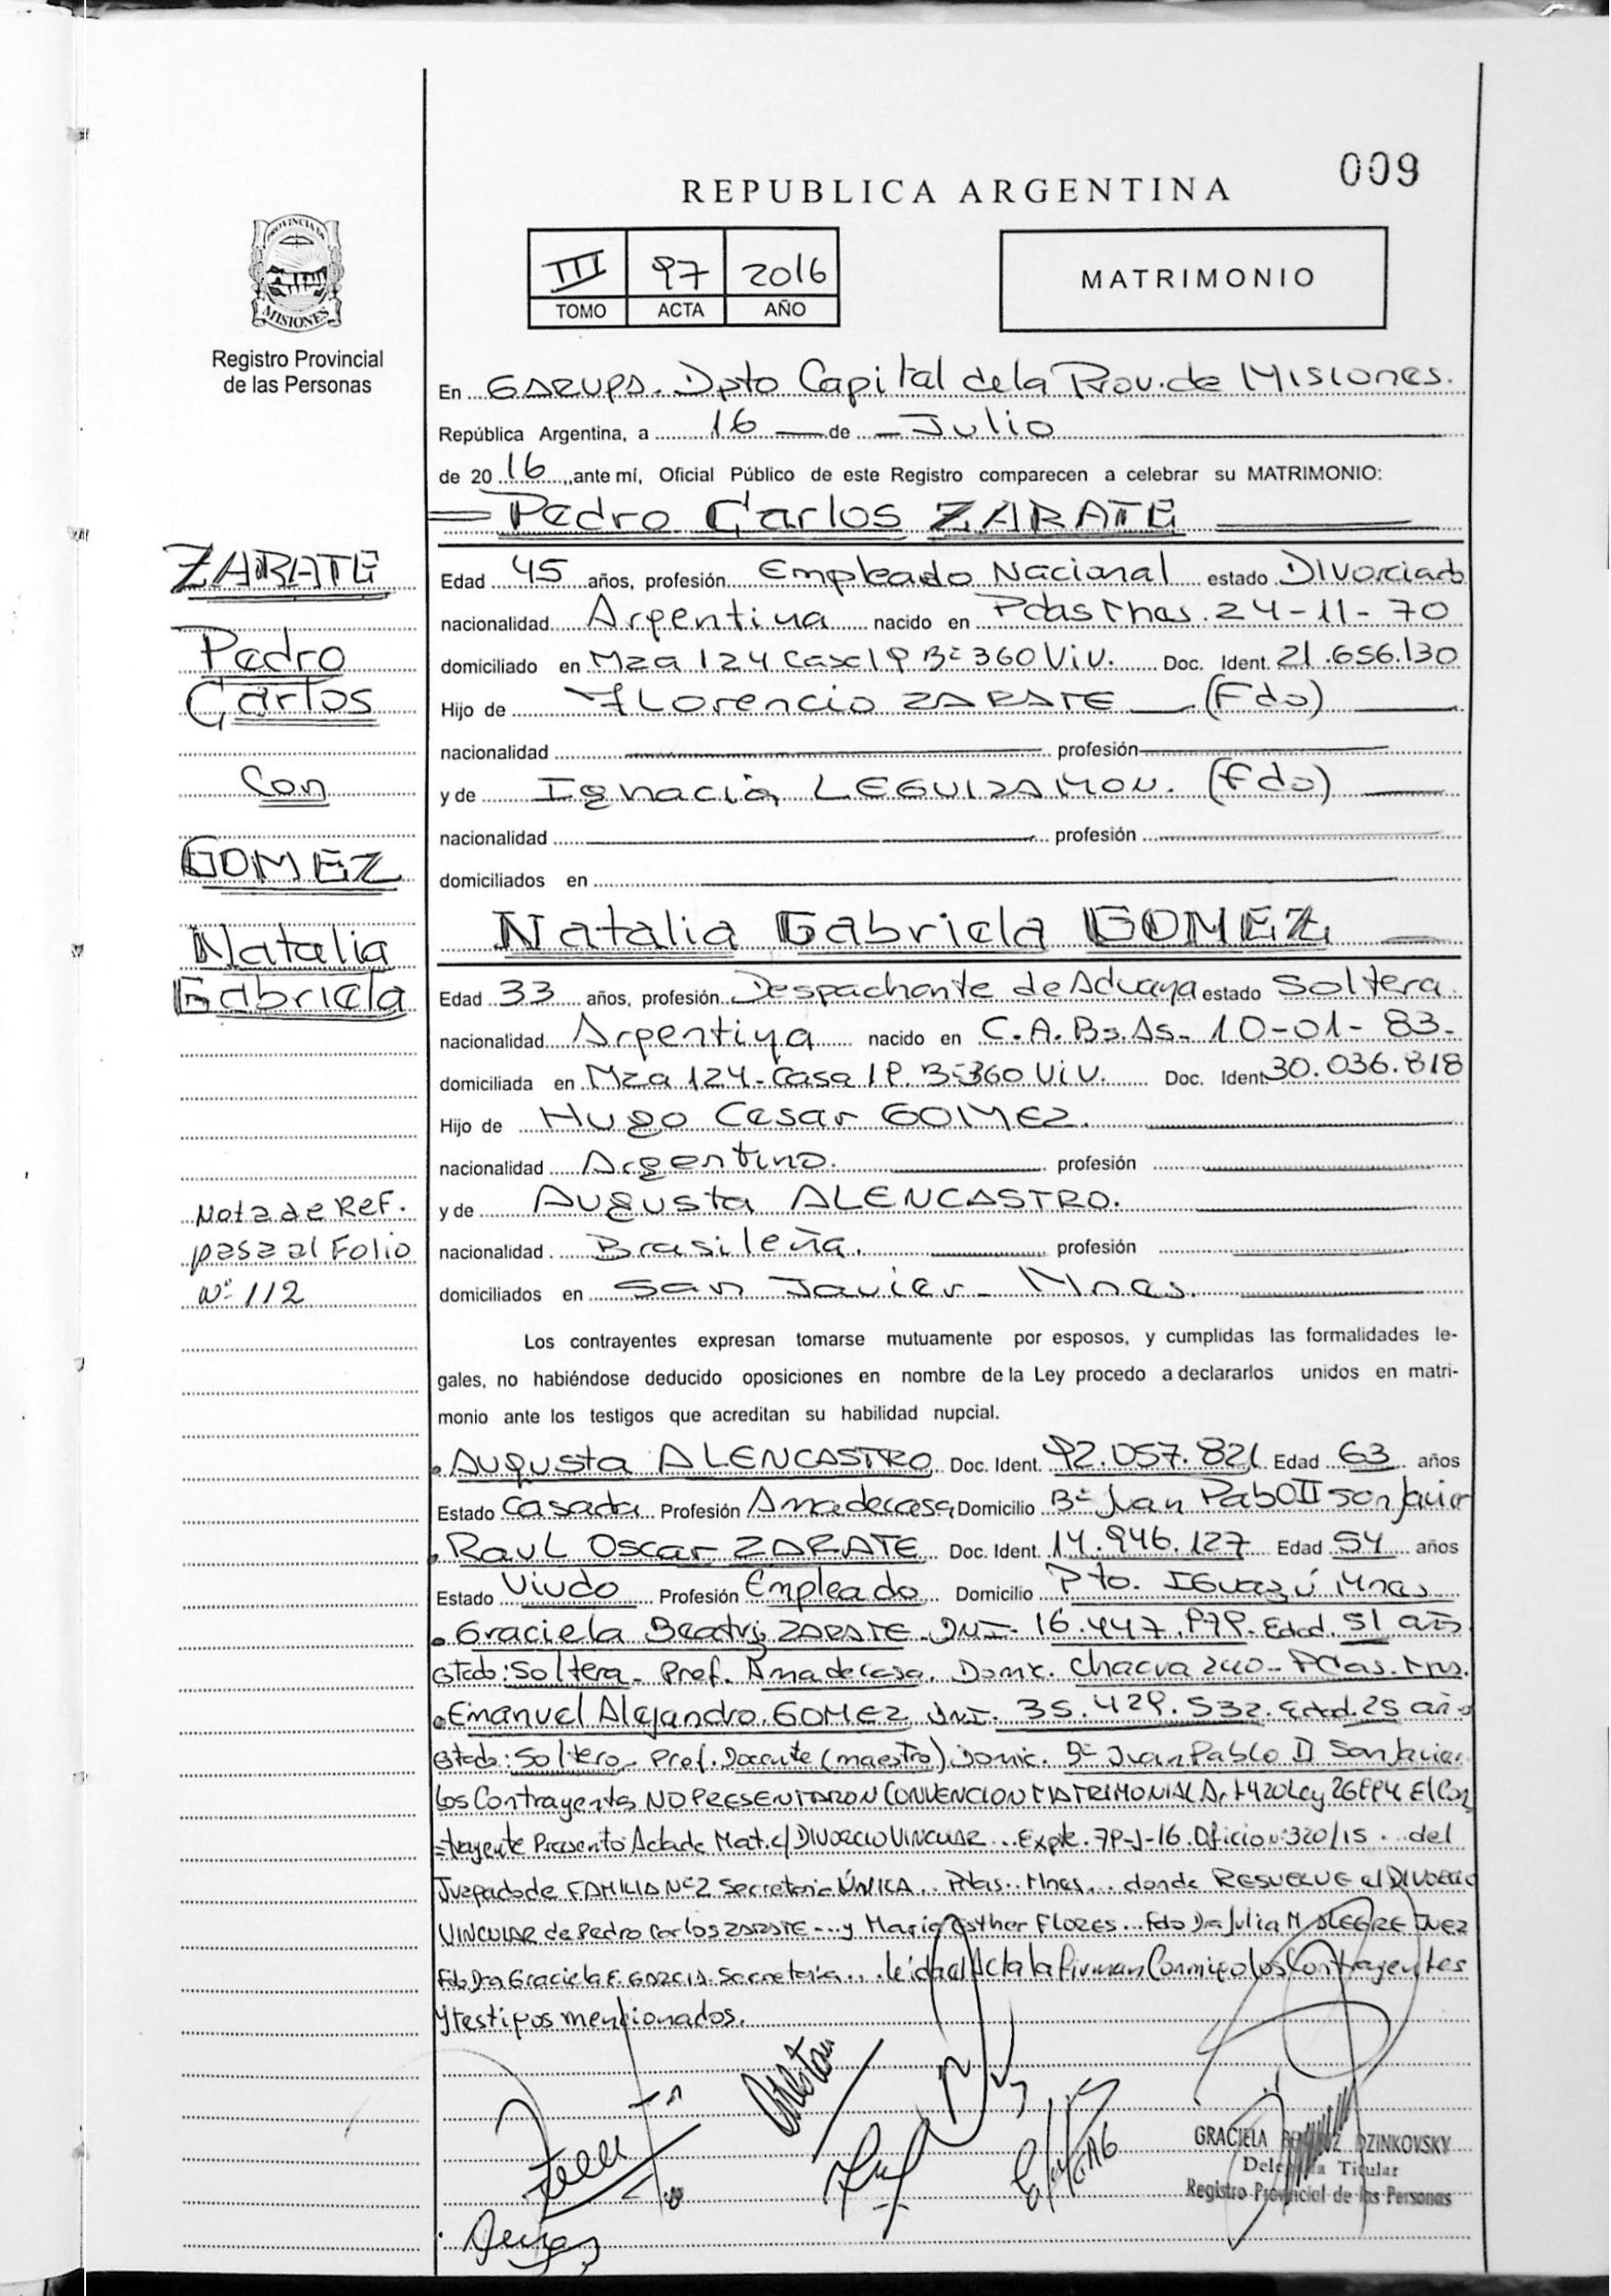 009
REPUBLICA ARGENTINA
PROVINCIA DE
MISIONES
Registro Provincial
de las Personas
III 97 2016
TOMO ACTA AÑO
MATRIMONIO
En GARUPA. Dpto Capital de la Prov. de Misiones.
República Argentina, a 16 de Julio
de 2016, ante mí, Oficial Público de este Registro comparecen a celebrar su MATRIMONIO:
Pedro Carlos ZARATE
Edad 45 años, profesión Empleado Nacional estado Divorciado
nacionalidad Argentina nacido en Pdas Mnes. 24-11-70
domiciliado en Mza 124 Casa 19 Bº 360 Viv. Doc. Ident. 21.656.130
Hijo de Florencio ZARATE (Fdo)
nacionalidad profesión
y de Ignacia LEGUIZAMON. (Fdo)
nacionalidad profesión
domiciliados en
Natalia Gabriela GOMEZ
Edad 33 años, profesión Despachante de Aduana estado Soltera.
nacionalidad Argentina nacido en C.A.Bs.As- 10-01-83-
domiciliada en Mza 124-Casa 19. Bº360 Viv. Doc. Ident. 30.036.818
Hijo de Hugo Cesar GOMEZ.
nacionalidad Argentino. profesión
y de Augusta ALENCASTRO.
nacionalidad Brasileña. profesión
domiciliados en San Javier- Mnes.
ZARATE
Pedro
Carlos
Con
GOMEZ
Natalia
Gabriela
Nota de Ref.
pasa al Folio
Nº 112
Los contrayentes expresan tomarse mutuamente por esposos, y cumplidas las formalidades le-
gales, no habiéndose deducido oposiciones en nombre de la Ley procedo a declararlos unidos en matri-
monio ante los testigos que acreditan su habilidad nupcial.
Augusta ALENCASTRO Doc. Ident. 92.057.821 Edad 63 años
Estado Casada Profesión Ama de casa Domicilio Bº Juan Pablo II San Javier
Raul Oscar ZARATE Doc. Ident. 14.946.127 Edad 54 años
Estado Viudo Profesión Empleado Domicilio Pto. Iguazú Mnes
Graciela Beatriz ZARATE- DNI- 16.447.979. Edad. 51 años
Estado: Soltera- Prof. Ama de casa. Domic. Chacra 240- Pdas. Mns.
Emanuel Alejandro GOMEZ DNI. 35.429.532. Edad. 25 años
Estado: Soltero- Prof. Docente (maestro) Domic. Bº Juan Pablo II San Javier.
Los Contrayentes NO PRESENTARON CONVENCION MATRIMONIAL Art 420 Ley 26994 El Con
=trayente Presento Acta de Mat. c/ DIVORCIO VINCULAR... Expte. 79-J-16. Oficio Nº 320/15... del
Juzgado de FAMILIA Nº2 Secretaria ÚNICA.. Pdas.. Mnes... donde RESUELVE el DIVORCIO
VINCULAR de Pedro Carlos ZARATE---y Maria Esther FLORES... Fdo Dra Julia M. ALEGRE JUEZ
Fdo Dra Graciela F. GARCIA. Secretaria... leida el Acta la firman Conmigo los Contrayentes
y testigos mencionados.
GRACIELA DZINKOVSKY
Delegada Titular
Registro Provincial de las Personas